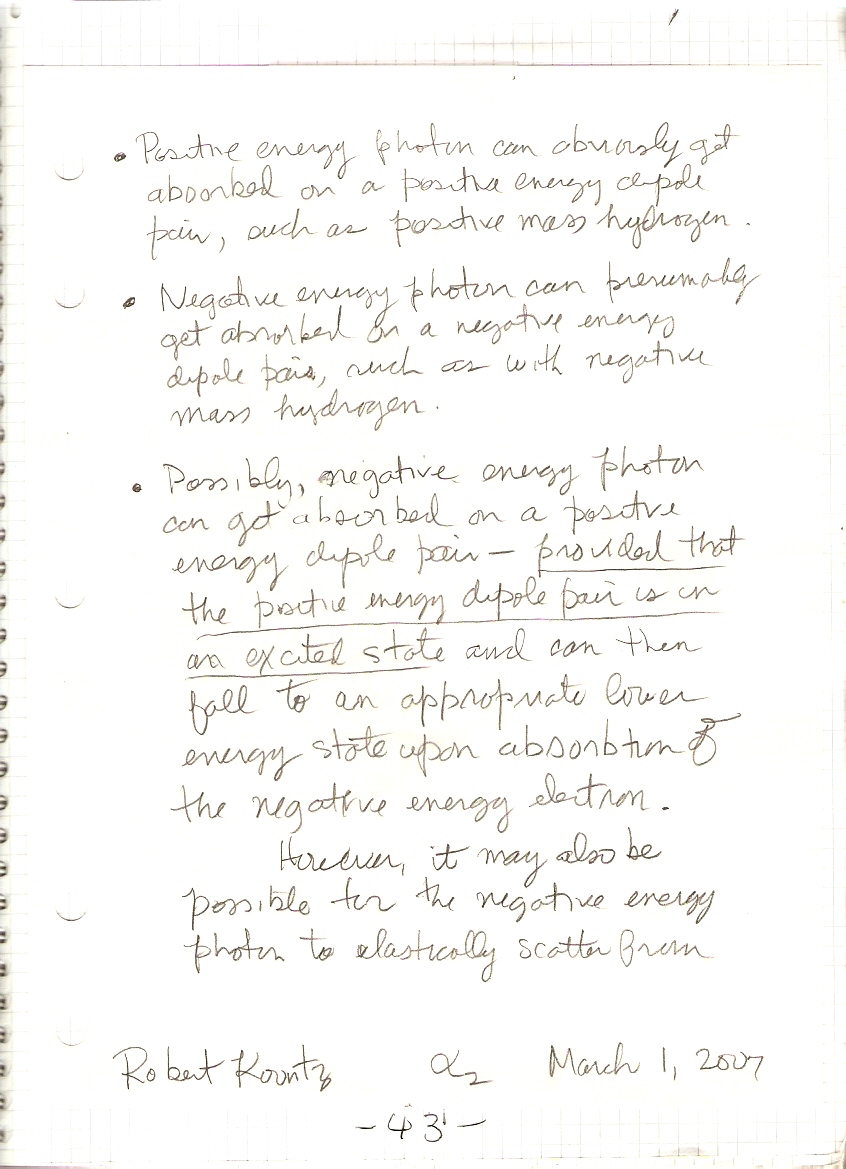 • Positive energy photon can obviously get
absorbed on a positive energy dipole
pair, such as positive mass hydrogen.
• Negative energy photon can presumably
get absorbed on a negative energy
dipole pair, such as with negative
mass hydrogen.
• Possibly, negative energy photon
can get absorbed on a positive
energy dipole pair — provided that
the positive energy dipole pair is in
an excited state and can then
fall to an appropriate lower
energy state upon absorbtion of
the negative energy electron.
However, it may also be
possible for the negative energy
photon to elastically scatter from
Robert Koontz α2 March 1, 2007
- 43 -